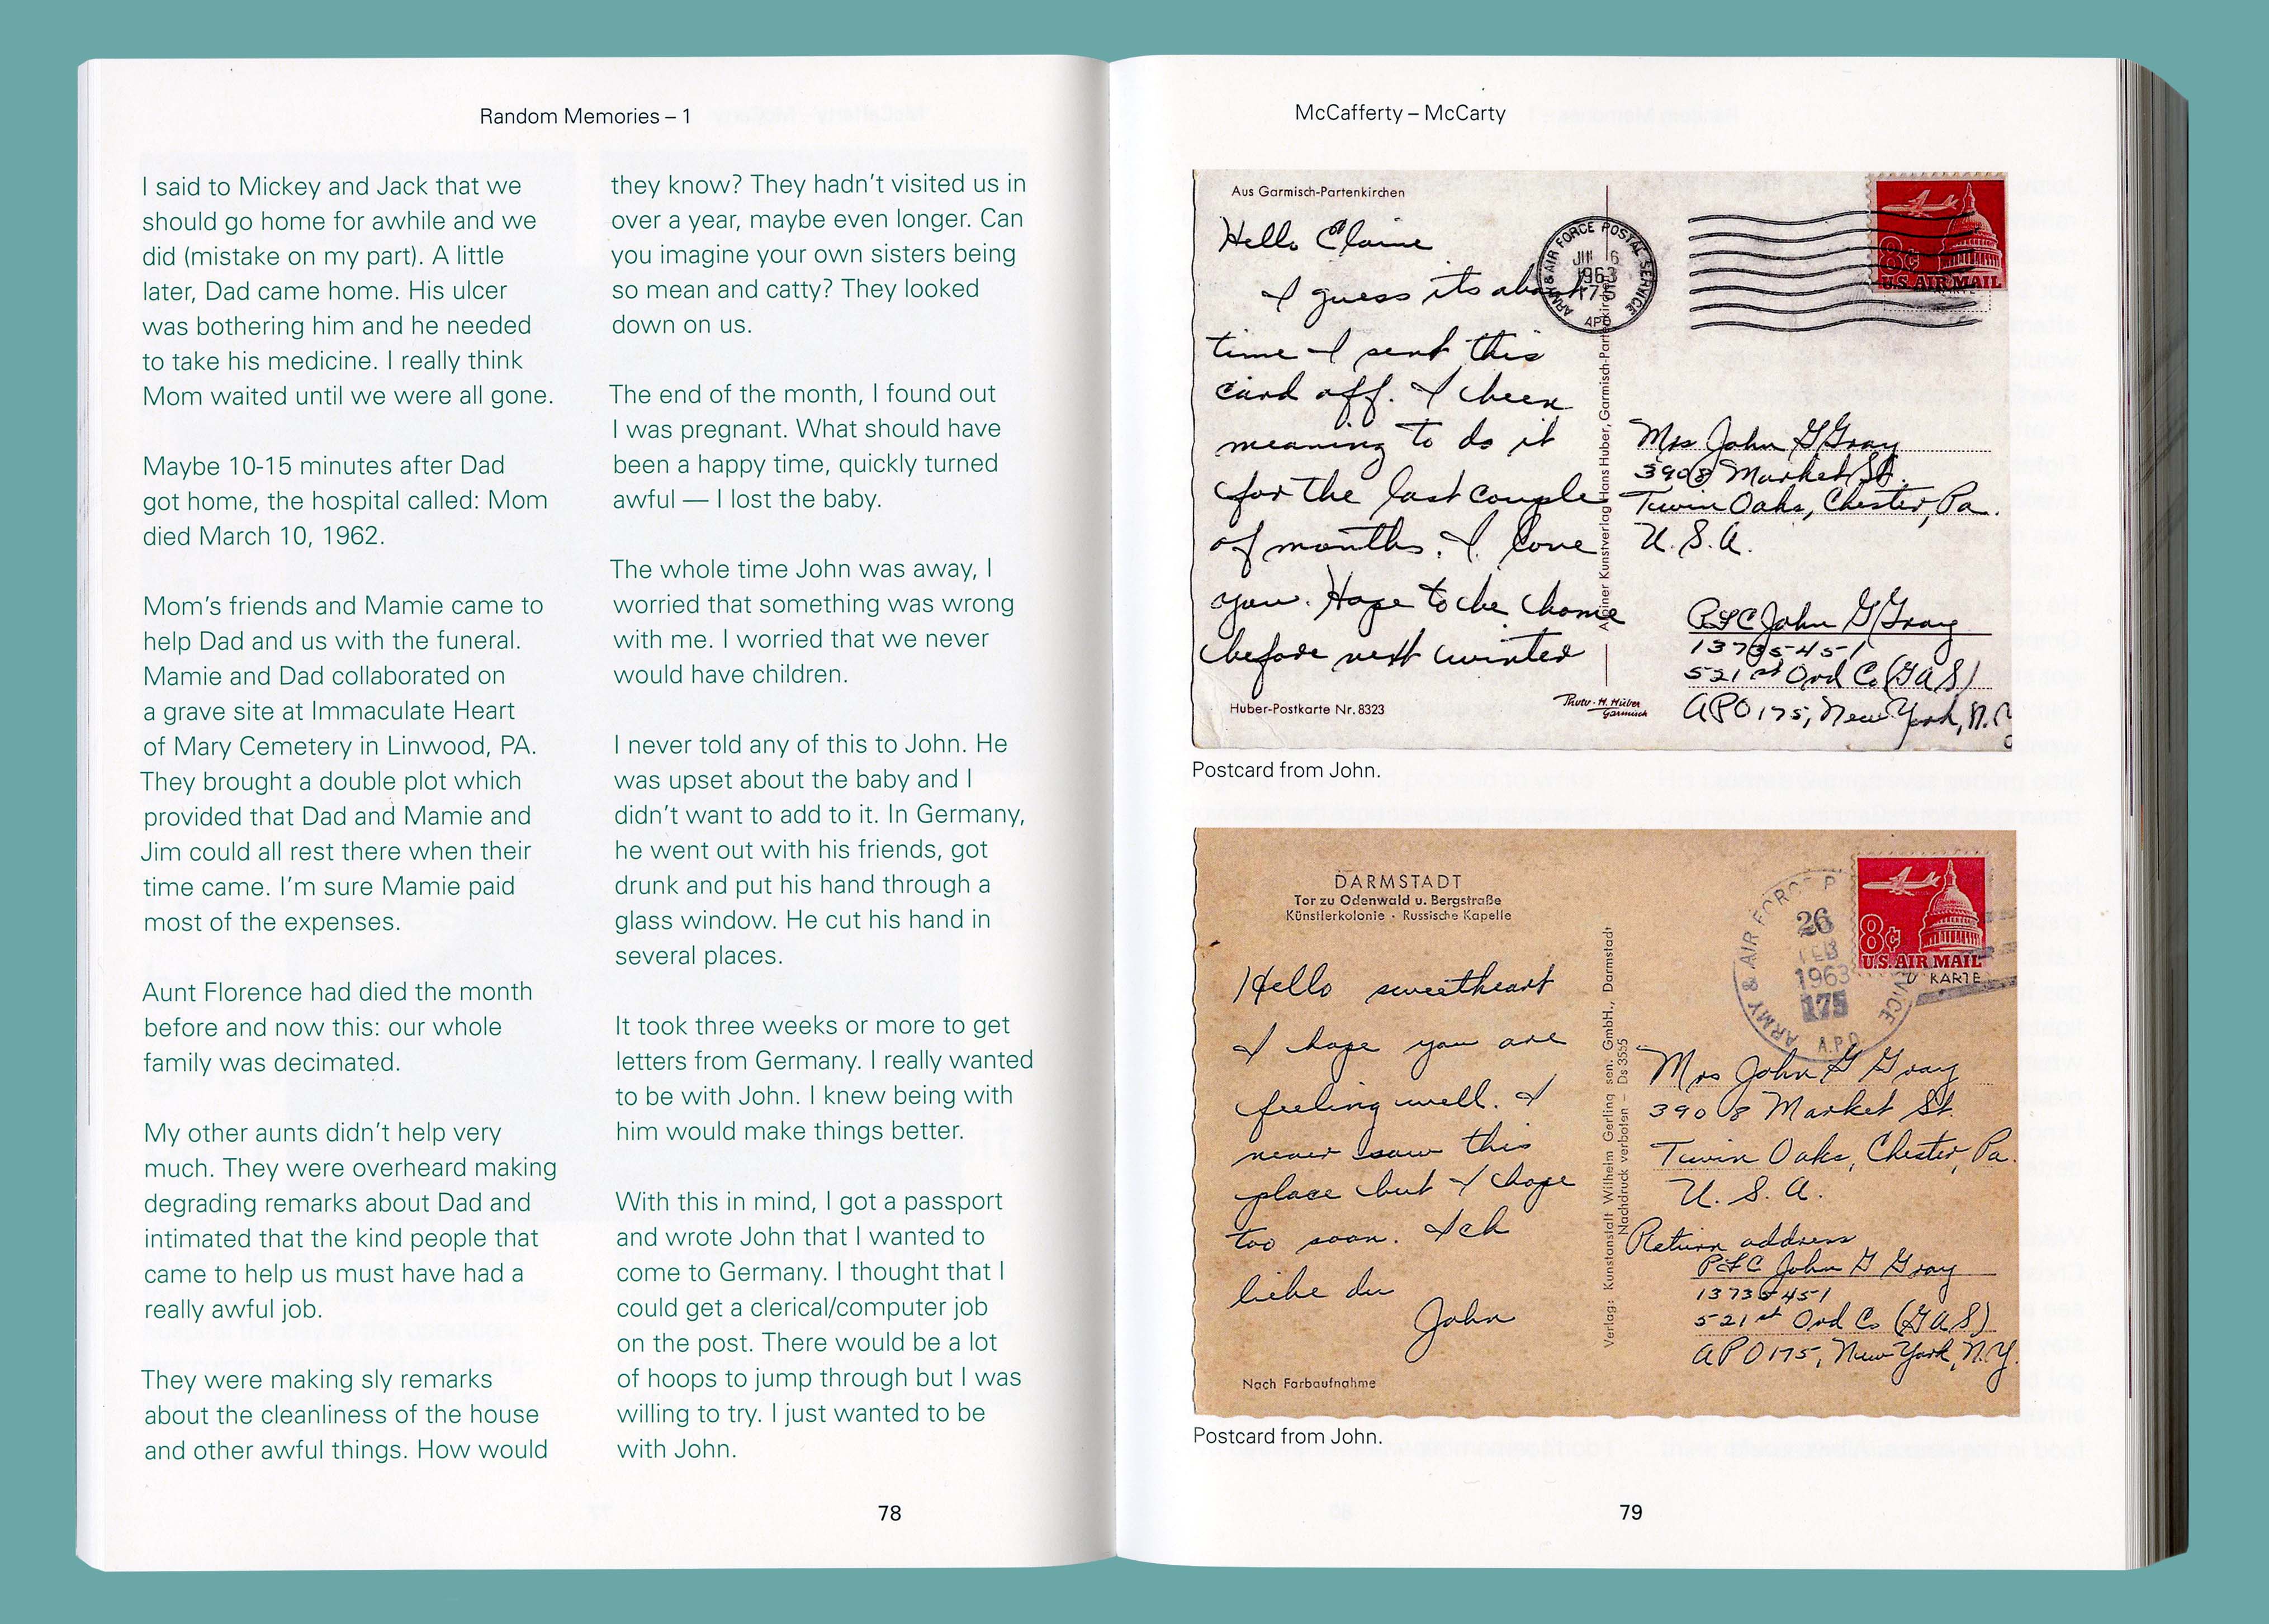 Random Memories – 1
I said to Mickey and Jack that we
should go home for awhile and we
did (mistake on my part). A little
later, Dad came home. His ulcer
was bothering him and he needed
to take his medicine. I really think
Mom waited until we were all gone.
Maybe 10-15 minutes after Dad
got home, the hospital called: Mom
died March 10, 1962.
Mom's friends and Mamie came to
help Dad and us with the funeral.
Mamie and Dad collaborated on
a grave site at Immaculate Heart
of Mary Cemetery in Linwood, PA.
They brought a double plot which
provided that Dad and Mamie and
Jim could all rest there when their
time came. I'm sure Mamie paid
most of the expenses.
Aunt Florence had died the month
before and now this: our whole
family was decimated.
My other aunts didn't help very
much. They were overheard making
degrading remarks about Dad and
intimated that the kind people that
came to help us must have had a
really awful job.
They were making sly remarks
about the cleanliness of the house
and other awful things. How would
they know? They hadn't visited us in
over a year, maybe even longer. Can
you imagine your own sisters being
so mean and catty? They looked
down on us.
The end of the month, I found out
I was pregnant. What should have
been a happy time, quickly turned
awful — I lost the baby.
The whole time John was away, I
worried that something was wrong
with me. I worried that we never
would have children.
I never told any of this to John. He
was upset about the baby and I
didn't want to add to it. In Germany,
he went out with his friends, got
drunk and put his hand through a
glass window. He cut his hand in
several places.
It took three weeks or more to get
letters from Germany. I really wanted
to be with John. I knew being with
him would make things better.
With this in mind, I got a passport
and wrote John that I wanted to
come to Germany. I thought that I
could get a clerical/computer job
on the post. There would be a lot
of hoops to jump through but I was
willing to try. I just wanted to be
with John.
78
McCafferty – McCarty
Aus Garmisch-Partenkirchen
Hello Elaine
I guess its about
time I sent this
card off. I been
meaning to do it
for the last couple
of months. I love
you. Hope to be home
before next winter
Huber-Postkarte Nr. 8323
Photo - H. Huber
Garmisch
Kunstverlag Hans Huber, Garmisch-Partenkirchen
ARMY & AIR FORCE POSTAL SERVICE
1963
175
APO
8¢
U.S. AIR MAIL
Mrs John G Gray
3908 Market St.
Twin Oaks, Chester, Pa.
U. S. A.
PFC John G Gray
13735451
521st Ord Co (GAS)
APO 175, New York, N.Y.
Postcard from John.
DARMSTADT
Tor zu Odenwald u. Bergstraße
Künstlerkolonie · Russische Kapelle
Hello sweetheart
I hope you are
feeling well. I
never saw this
place but I hope
too soon. Ich
liebe du
John
Nach Farbaufnahme
Verlag: Kunstanstalt Wilhelm Gerling sen. GmbH., Darmstadt
Nachdruck verboten – Ds 3555
ARMY & AIR FORCE P VICE
26
FEB
1963
175
A.P.O
8¢
U.S. AIR MAIL
KARTE
Mrs John G Gray
3908 Market St.
Twin Oaks, Chester, Pa.
U. S. A.
Return address
PFC John G Gray
13735451
521st Ord Co (GAS)
APO 175, New York, N.Y.
Postcard from John.
79